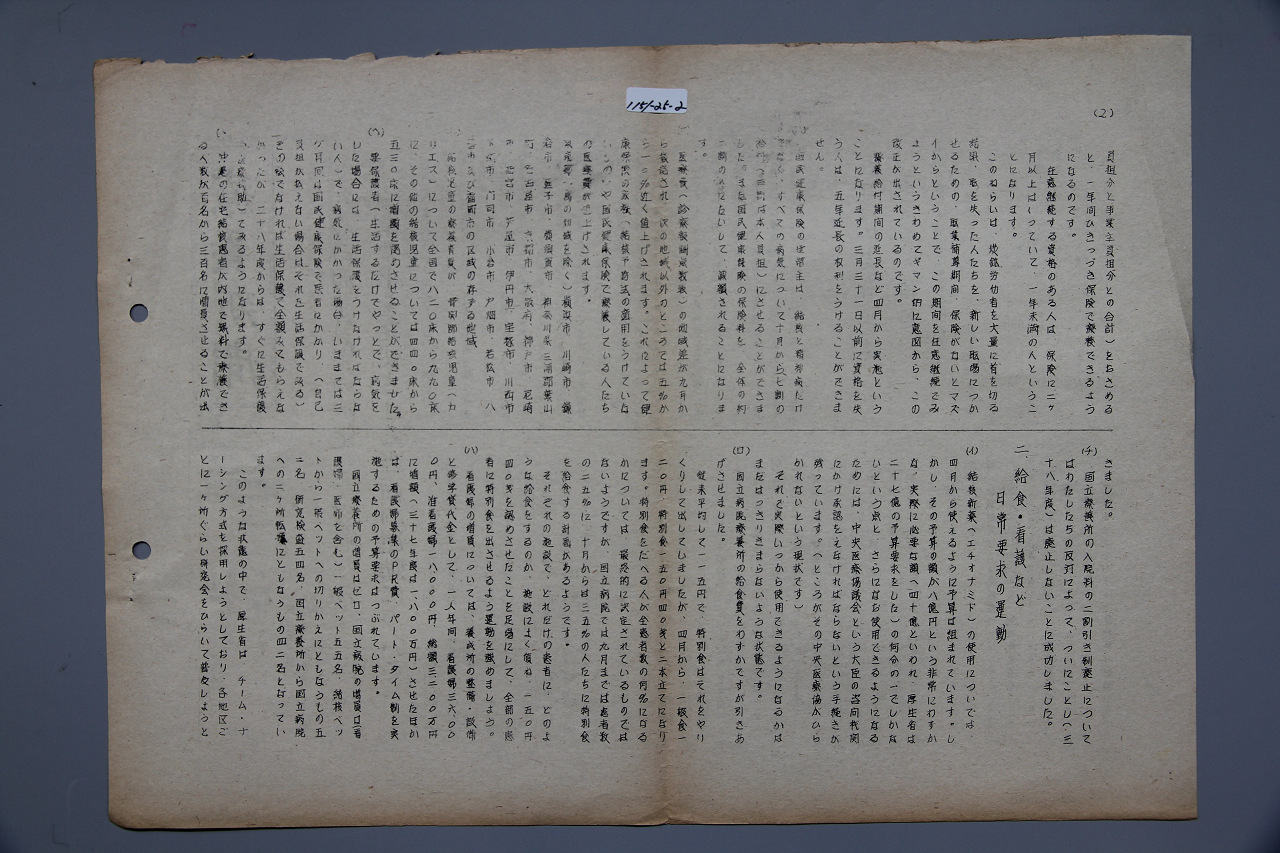 1151-25-2
(2)
員担分と事業主負担分との合計)をおさめる
と、一年間ひきつづき保険で療養できるよう
になるのです。
任意継続する資格のある人は、保険に二ヶ
月以上はいっていて、一年未満の人というこ
とになります。
このねらいは、炭鉱労働者を大量に首を切る
結果、職を失った人たちを、新しい職場につか
せるための、職業補導期間、保険がないとマズ
イからということで、この期間を任意継続でみ
ようというきわめてギマン的な意図から、この
改正が出されているのです。
療養給付期間の延長など四月から実施という
ことになります。三月三十一日以前に資格を失
う人は、五年延長の権利をうけることができま
せん。
国民健康保険の世帯主は、結核と精神病だけ
でなく、すべての病気について十月から七割の
給付(三割は本人負担)にさせることができま
した。また国民健康保険の保険料を、全体の約
三割の人にたいして、減額されることになりま
す。
医療費(診療報酬点数表)の地域差が九月か
ら撤廃され、次の地域以外のところでは五%か
ら一〇%近く値上げされます。これによって健
康保険の家族、結核予防法の適用をうけていな
いものや国民健康保険で療養している人たち
の医療費が値上げされます。
横浜市 川崎市 鎌
倉市、逗子市、横須賀市、神奈川県三浦郡葉山
町、名古屋市 京都市 大阪府、神戸市 尼崎
市 西宮市 芦屋市 伊丹市、宝塚市、川西市
下関市 門司市 小倉市 戸畑市、若松市 八
幡市及び福岡市の区域の存する地域
結核児童の療養費が、骨関節結核児童(カ
リエス)について全国で八二〇床から九九〇床
に、その他の結核児童については四四〇床から
五三〇床に増園を認めさせることができました。
(ヘ) 要保護者(生活するだけでやっとで、病気を
した場合には、生活保護をうけなければならな
い人)で、病気にかかった場合、いままでは三
ヶ月間は国民健康保険で医者にかかり、(自己
負担が払えない場合はそれを生活保護でみる)
その後でなければ生活保護で全額みてもらえな
かったが、三十八年度からは、すぐに生活保護
(医療扶助)でみるようになります。
沖縄の在宅結核患者が内地で無料で療養でき
る人数が百名から三百名に増員させることが出
きました。
(チ) 国立療養所の入院料の二割引き制廃止について
はわたしたちの反対によって、ついにことし(三
十八年度)は廃止しないことに成功しました。
二、給食・看護など
日常要求の運動
(イ) 結核新薬(エチオナミド)の使用については
四月から使えるように予算は組まれています。し
かし、その予算の額が八億円という非常にわずか
な、実際に必要な額(四十億といわれ、厚生省は
二十七億の予算要求をした)の何分の一でしかな
いという点と、さらになお使用できるようになる
ためには、中央医療協議会という大臣の諮問機関
にかけ承認をえなければならないという手続きが
残っています。(ところがその中央医療協がひら
かれないという現状です)
それで実際いつから使用できるようになるかは
まだはっきりきまらないような状態です。
(ロ) 国立病院療養所の給食費をわずかですが引きあ
げさせました。
従来平均して一一五円で、特別食はそれをやり
くりして出してしましたが、四月から、一般食一
二〇円、特別食一五〇円四〇銭と二本立てになり
ます。特別食をたべる人が全患者数の何%になる
かについては、最終的に決定されているものでは
ないようですが、国立病院では九月までは患者数
の二五%に、十月からは三五%の人たちに特別食
を給食する計画があるようです。
それぞれの施設で、どれだけの患者に、どのよ
うな給食をするのか、施設によく質ね、一五〇円
四〇銭を認めさせたことを足場にして、全部の患
者に特別食を出させるよう運動を強めましょう。
(ハ) 看護婦の増員については、養成所の整備・設備
と修学食代金として、一人年間、看護婦三六、〇〇
〇円、准看護婦一八、〇〇〇円、総額三二〇〇万円
に増額(三十七年度は一、八〇〇万円)させたほか
は、看護婦募集のPR費、パート・タイム制を実
施するための予算要求はつぶれています。
国立療養所の増員はゼロ、国立病院の増員は(看
護婦・医師を含む)一般ベット五五名、結核ベッ
トから一般ベットへの切りかえにともなうもの五
二名、研究検査五四名、国立療養所から国立病院
への二ヶ所転換にともなうもの四二名となってい
ます。
このような状態の中で、厚生省は、チーム・ナ
ーシング方式を採用しようとしており、各地区ご
とに一ヶ所ぐらい研究会をひらいて普及しようと